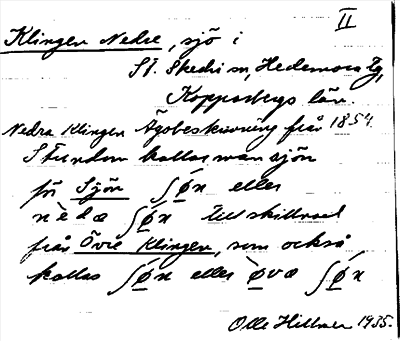 II
Klingen Nedre, sjö i
St. Skedvi sn, Hedemora tg,
Kopparbergs län.
Nedra Klingen Ägobeskrivning från 1854.
Stundom kallas man sjön
för Sjön ʃǿn eller
nèdæ ʃǿn till skillnad
från Övre Klingen, som också
kallas ʃǿn eller ø̀væ ʃǿn
Olle Hillner 1935.